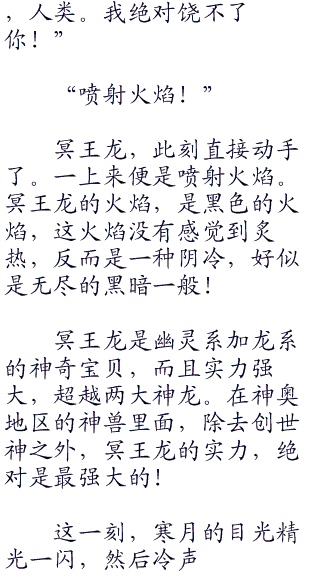 ，人类。我绝对饶不了
你！”
“喷射火焰！”
冥王龙，此刻直接动手
了。一上来便是喷射火焰。
冥王龙的火焰，是黑色的火
焰，这火焰没有感觉到炙
热，反而是一种阴冷，好似
是无尽的黑暗一般！
冥王龙是幽灵系加龙系
的神奇宝贝，而且实力强
大，超越两大神龙。在神奥
地区的神兽里面，除去创世
神之外，冥王龙的实力，绝
对是最强大的！
这一刻，寒月的目光精
光一闪，然后冷声